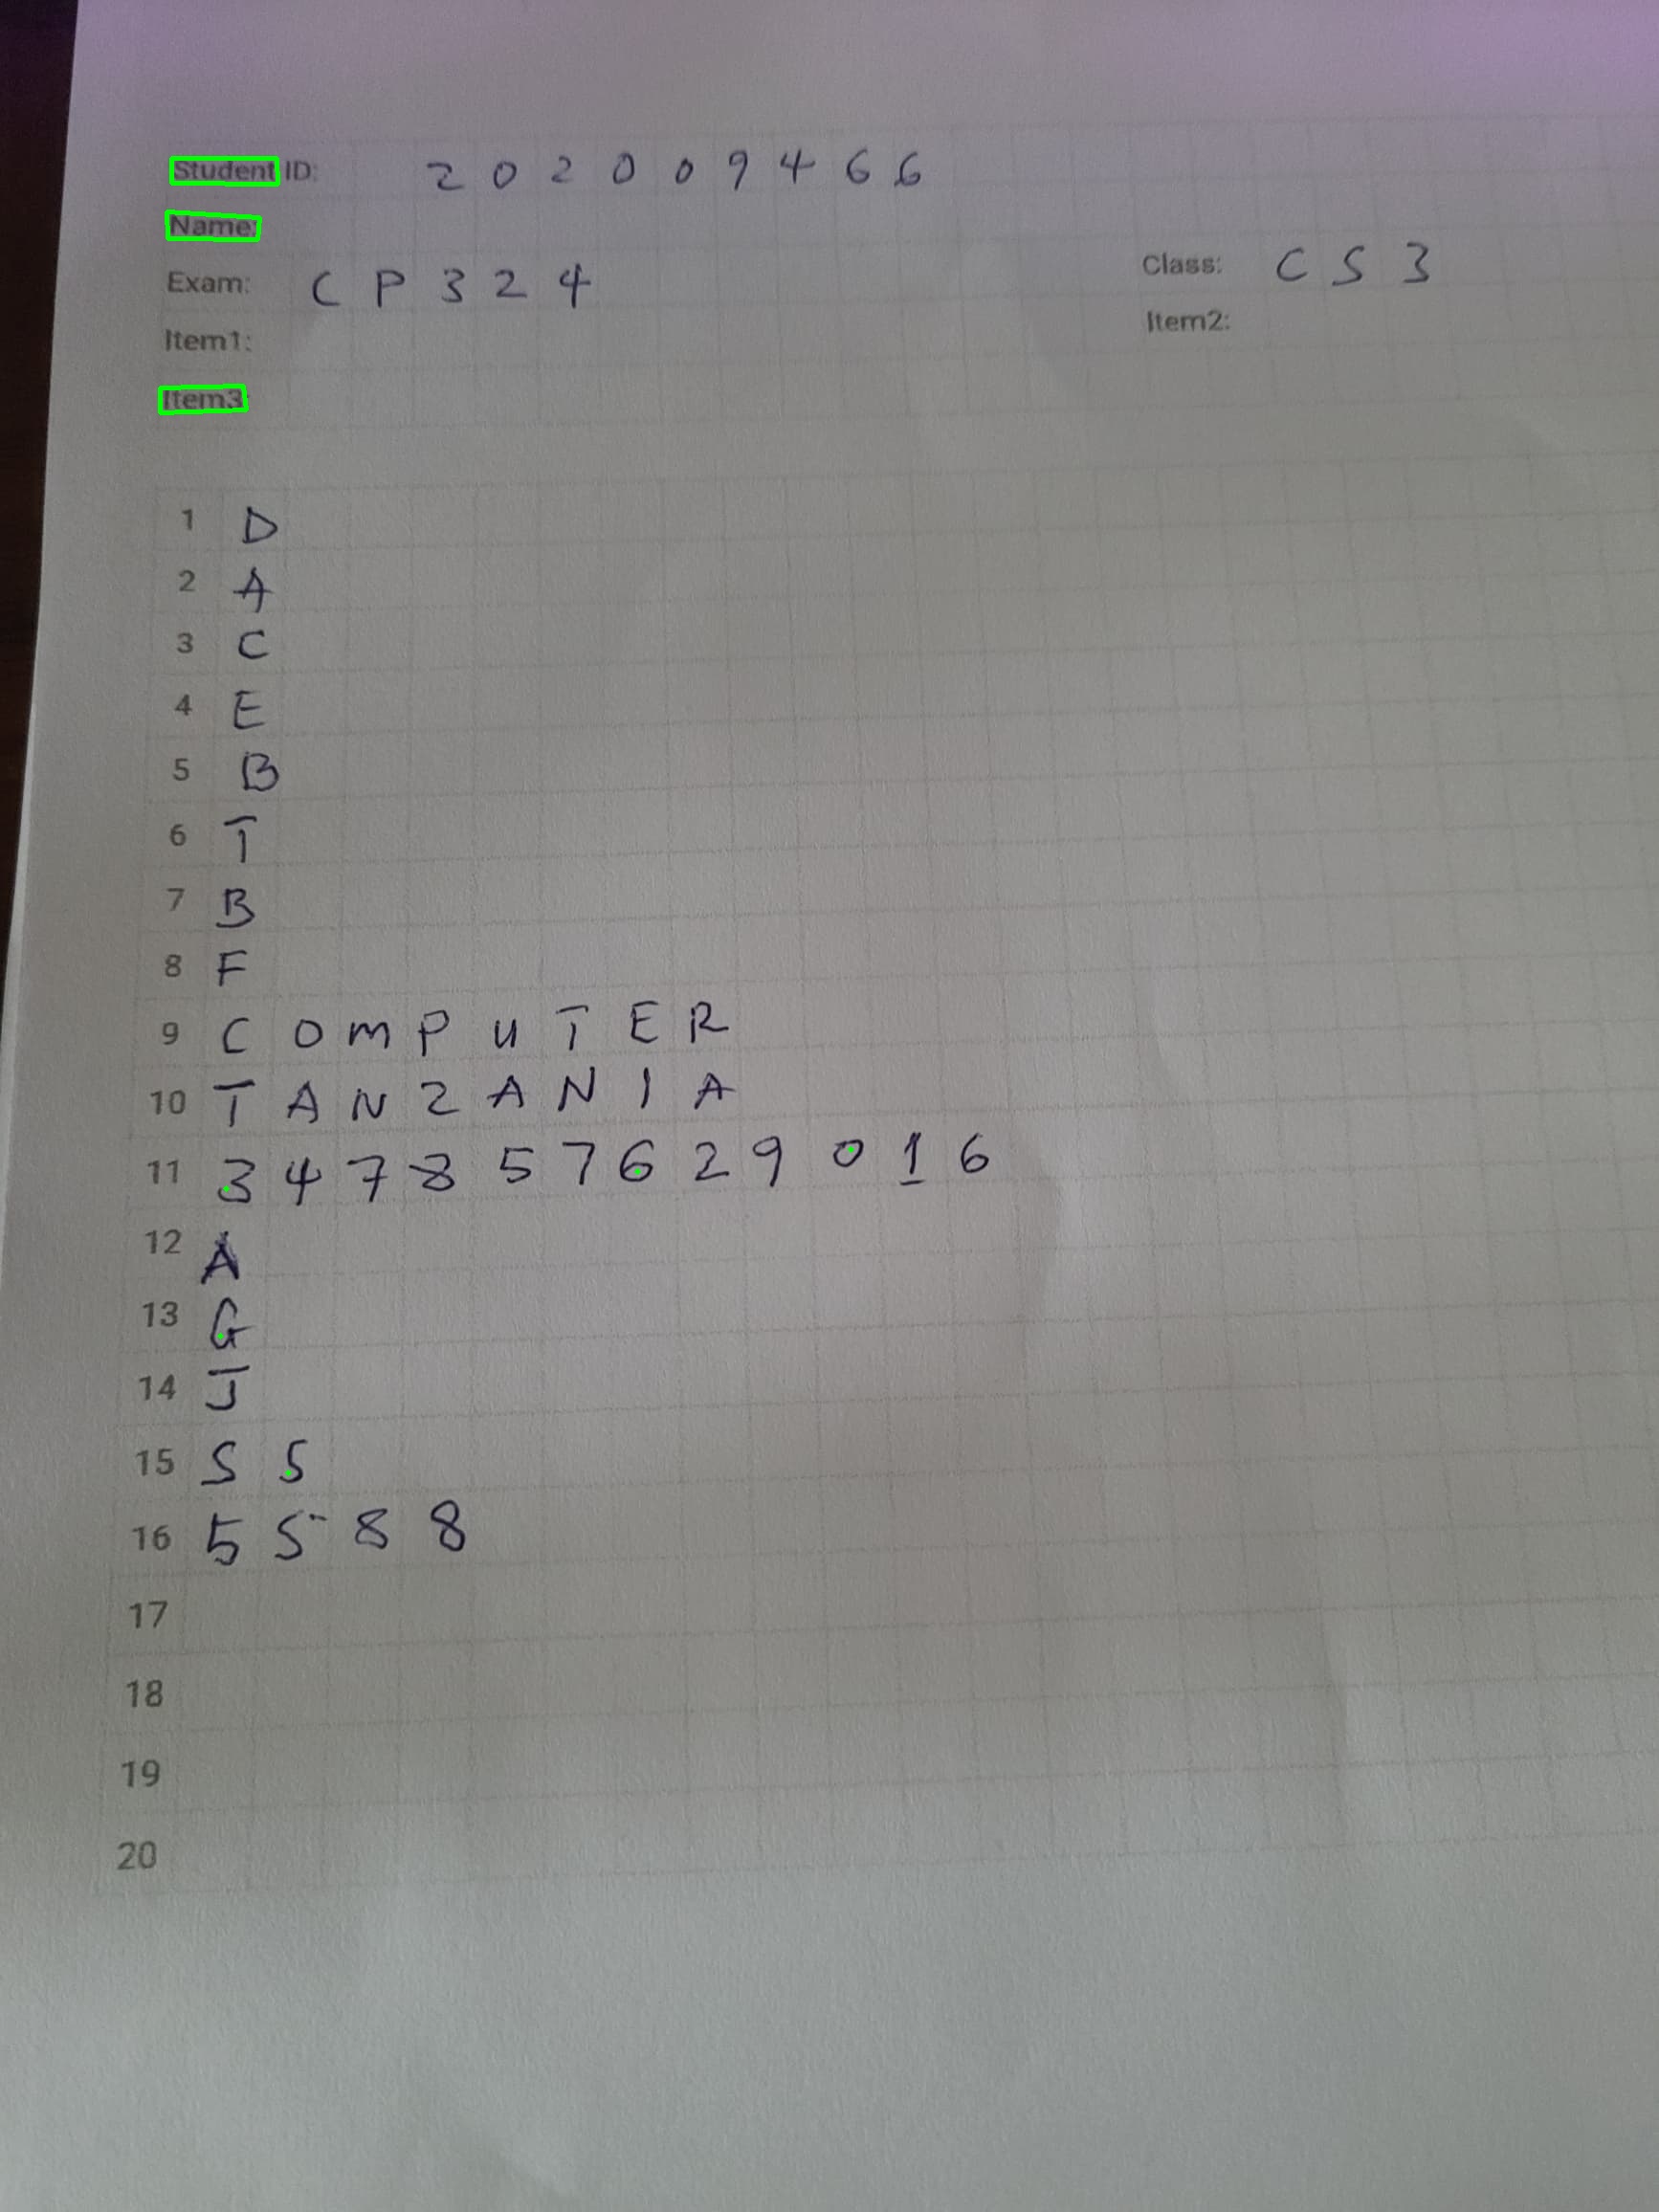 Student ID: 202009466
Name:
Exam: CP324 Class: CS3
Item1: Item2:
Item3
1 D
2 A
3 C
4 E
5 B
6 T
7 B
8 F
9 COMPUTER
10 TANZANIA
11 347857629016
12 A
13 G
14 J
15 S5
16 5588
17
18
19
20